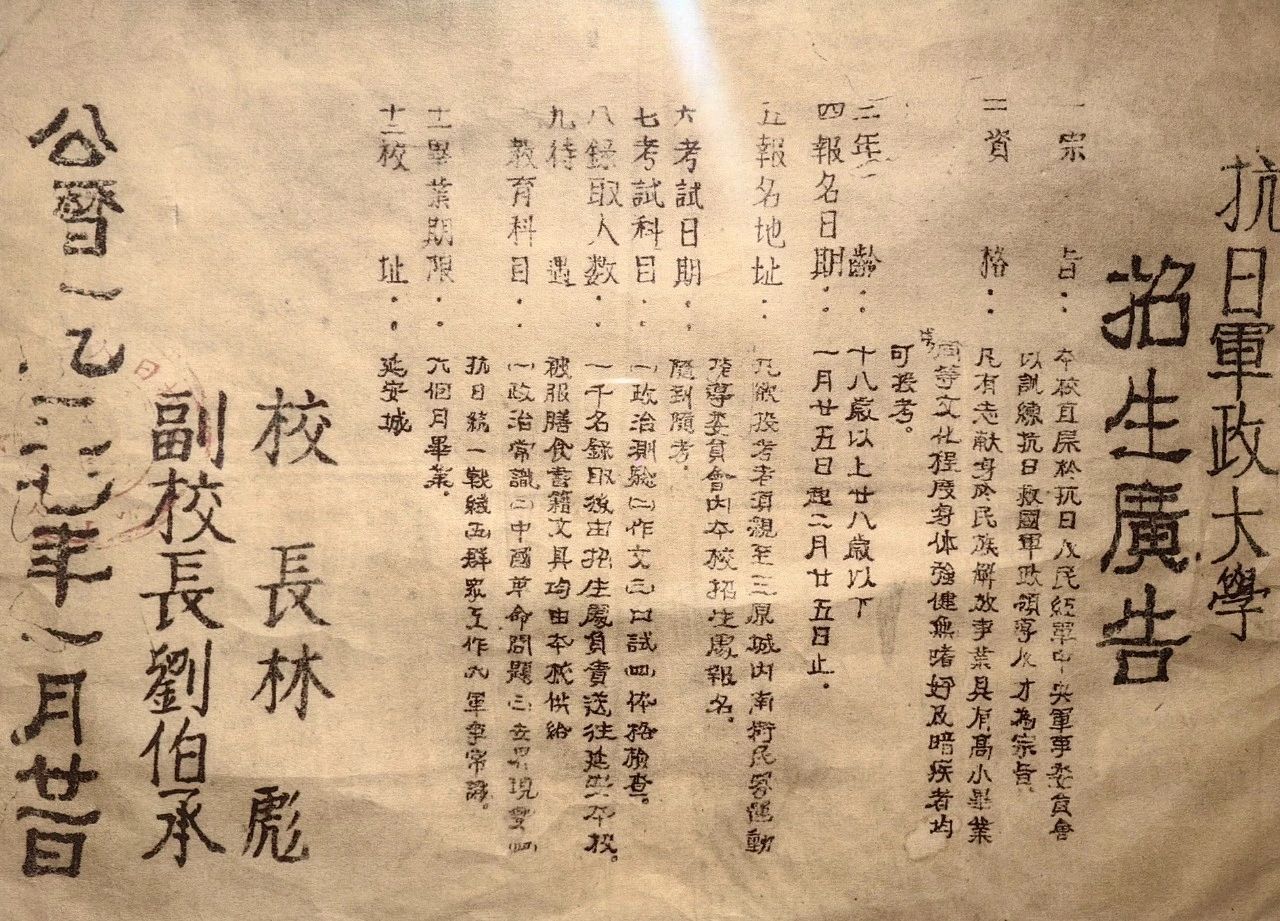 抗日軍政大學
招生廣告
一 宗旨：本校直屬於抗日人民紅軍中央軍事委員會
以訓練抗日救國軍政領導人才為宗旨
二 資格：凡有志献身於民族解放事業具有高小畢業
或同等文化程度身体強健無嗜好及暗疾者均
可投考。
三 年齡：十八歲以上廿八歲以下
四 報名日期：一月廿五日起二月廿五日止．
五 報名地址：凡欲投考者須親至三原城內南街民眾運動
指導委員會內本校招生處報名．
六 考試日期：隨到隨考．
七 考試科目：㈠政治測驗㈡作文㈢口試㈣体格檢查。
八 錄取人数：一千名錄取後由招生處負責送往延安本校。
九 待遇：被服膳食書籍文具均由本校供給
教育科目：㈠政治常識㈡中國革命問題㈢世界現勢㈣
抗日統一戰綫㈤群眾工作㈥軍事常識。
十一 畢業期限：六個月畢業．
十二 校址：延安城
校長林彪
副校長劉伯承
公曆一九三七年一月廿一日